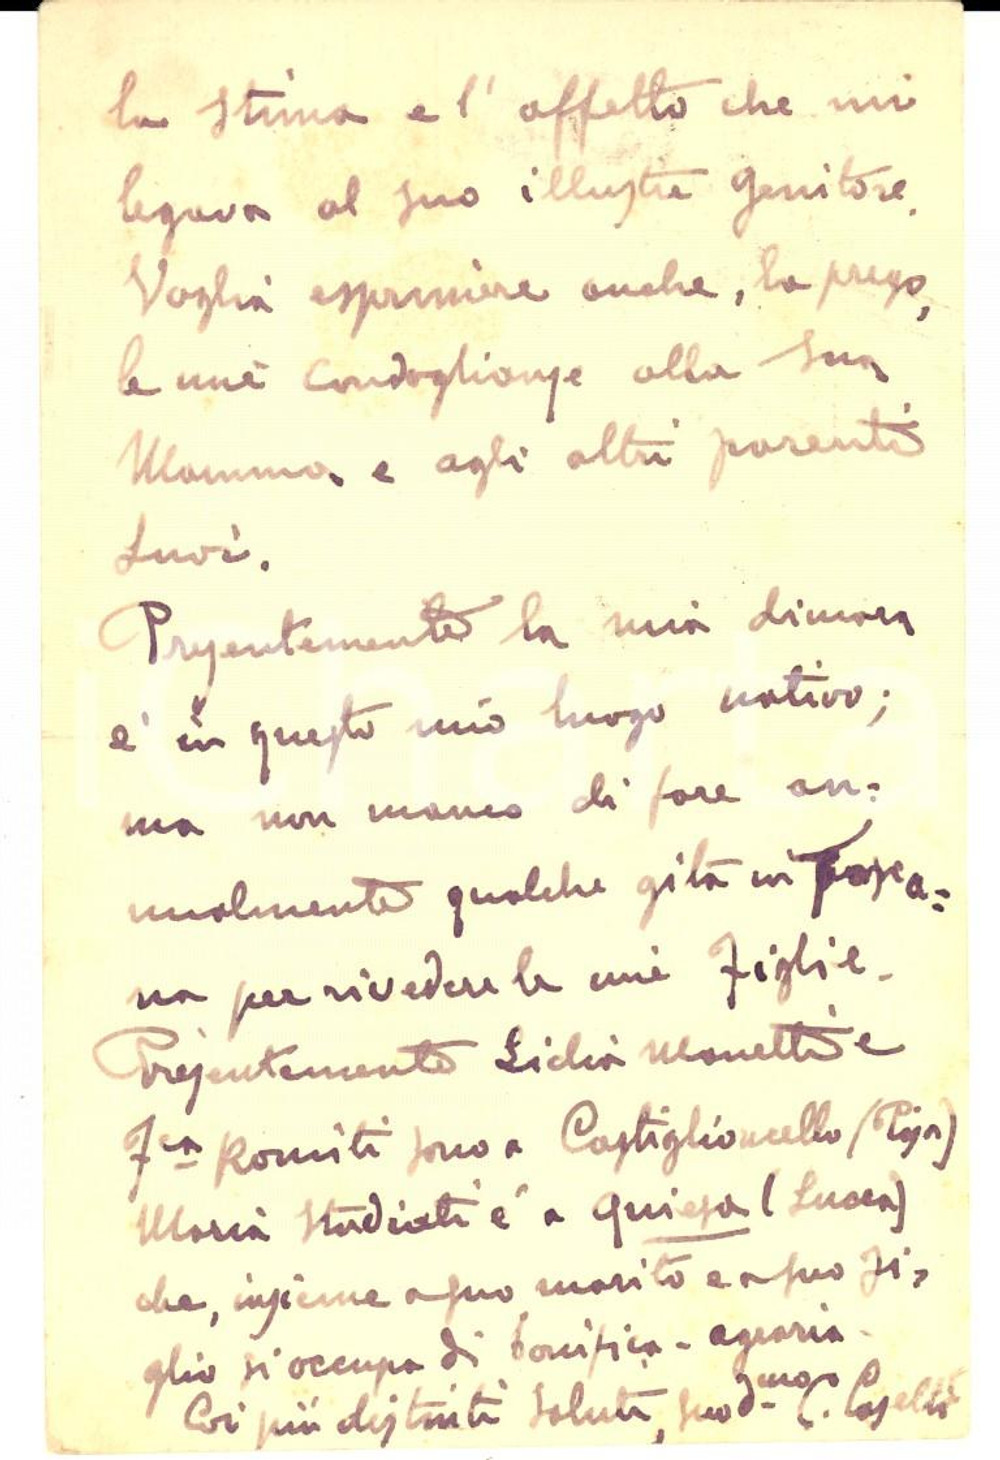 la stima e l'affetto che mi
legava al suo illustre Genitore.
Voglia esprimere anche, la prego,
le mie condoglianze alla Sua
Mamma e agli altri parenti
Suoi.
Presentemente la mia dimora
e' in questo mio luogo nativo;
ma non manco di fare an=
nualmente qualche gita in Tosca=
na per rivedere le mie Figlie.
Presentemente Lidia Monetti e
F.ca Romiti sono a Castiglioncello (Pisa)
Maria Studiati e' a Quiesa (Lucca)
che, insieme a suo marito e a suo fi=
glio si occupa di bonifica - agraria -
Coi più distinti saluti, suo d.mo C. Caselli
iCharta